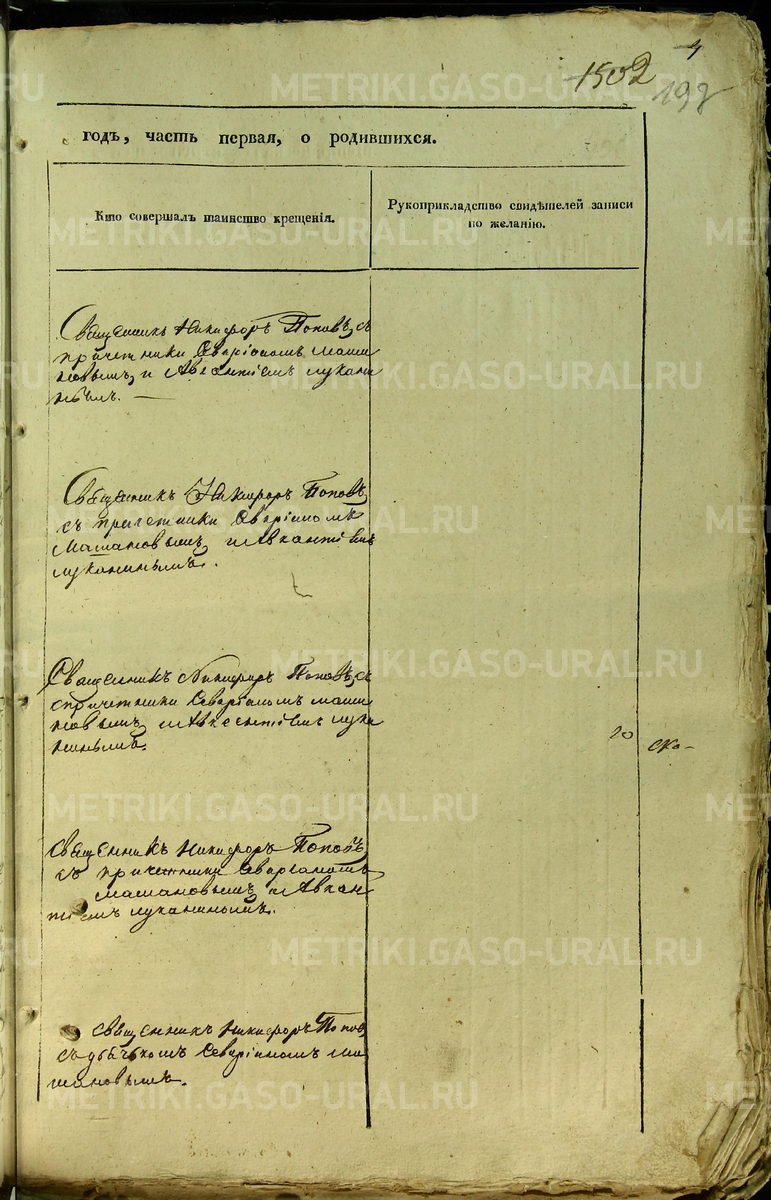 4
1502
198
годъ, часть первая, о родившихся.
Кто совершалъ таинство крещенія.
Рукоприкладство свидѣтелей записи
по желанію.
Священникъ Никифоръ Поповъ, съ
причетники Северіаномъ Маши
новымъ, и Авксентіемъ Лукани
нымъ.
Священникъ Никифоръ Поповъ,
съ причетники Северіаномъ
Машановымъ, и Авксентіемъ
Луканинымъ.
Священникъ Никифоръ Поповъ, съ
причетники Северіаномъ Маши
новымъ, и Авксентіемъ Лука
нинымъ.
20
ско-
Священникъ Никифоръ Поповъ
съ причетники Северіаномъ
Машановымъ, и Авксен
тіемъ Луканинымъ.
Священникъ Никифоръ Поповъ,
съ дьячкомъ Северіаномъ Ма
шановымъ.
METRIKI.GASO-URAL.RU